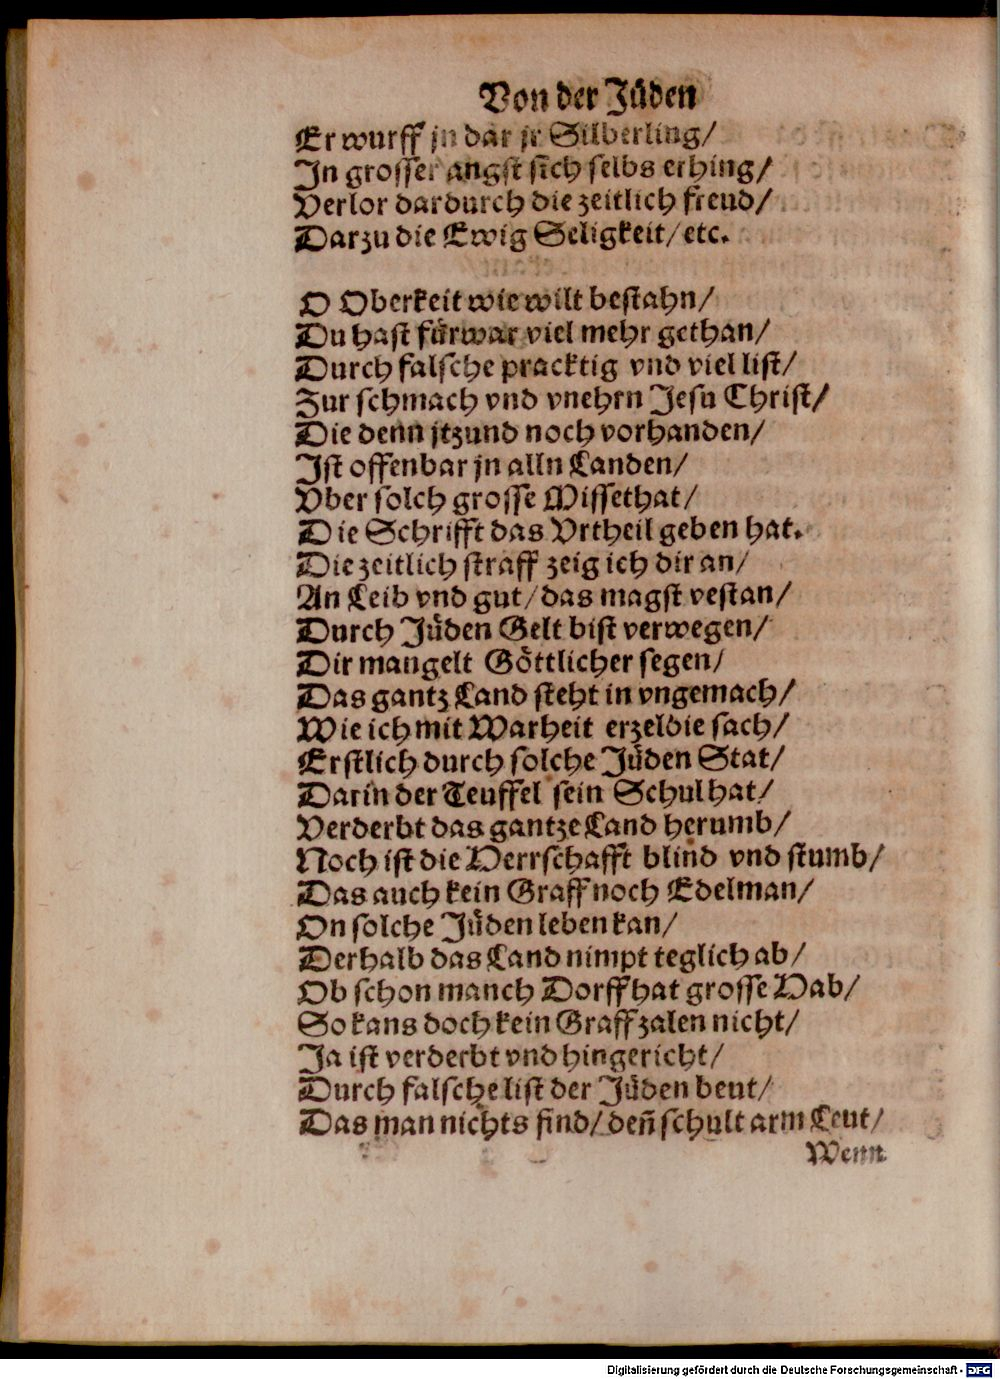 Von der Jüden
Er wurff jn dar jr Silberling/
In grosser angst sich selbs erhing/
Verlor dardurch die zeitlich freud/
Darzu die Ewig Seligkeit/ etc.
O Oberkeit wie wilt bestahn/
Du hast fürwar viel mehr gethan/
Durch falsche pracktig vnd viel list/
Zur schmach vnd vnehrn Jesu Christ/
Die denn jtzund noch vorhanden/
Ist offenbar jn alln Landen/
Vber solch grosse Missethat/
Die Schrifft das Vrtheil geben hat.
Die zeitlich straff zeig ich dir an/
An Leib vnd gut/ das magst vestan/
Durch Jüden Gelt bist verwegen/
Dir mangelt Göttlicher segen/
Das gantz Land steht in vngemach/
Wie ich mit Warheit erzel die sach/
Erstlich durch solche Jüden Stat/
Darin der Teuffel sein Schul hat/
Verderbt das gantze Land herumb/
Noch ist die Herrschafft blind vnd stumb/
Das auch kein Graff noch Edelman/
On solche Jüden leben kan/
Derhalb das Land nimpt teglich ab/
Ob schon manch Dorff hat grosse Hab/
So kans doch kein Graff zalen nicht/
Ja ist verderbt vnd hingericht/
Durch falsche list der Jüden beut/
Das man nichts find/ deñ schult arm Leut/
Wenn
Digitalisierung gefördert durch die Deutsche Forschungsgemeinschaft - DFG